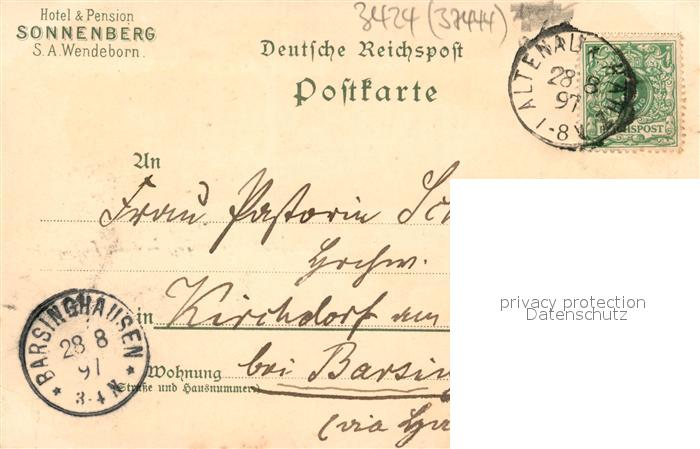 Hotel & Pension
SONNENBERG
S. A. Wendeborn.
3424 (37444)
Deutsche Reichspost
Postkarte
ALTENAU
28 8
97
1-8 V
REICHSPOST
An
Frau Pastorin
in
Kirchdorf am
Wohnung
(Straße und Hausnummer)
bei Barsing
(via
* BARSINGHAUSEN *
28 8
97
3-4 N
privacy protection
Datenschutz